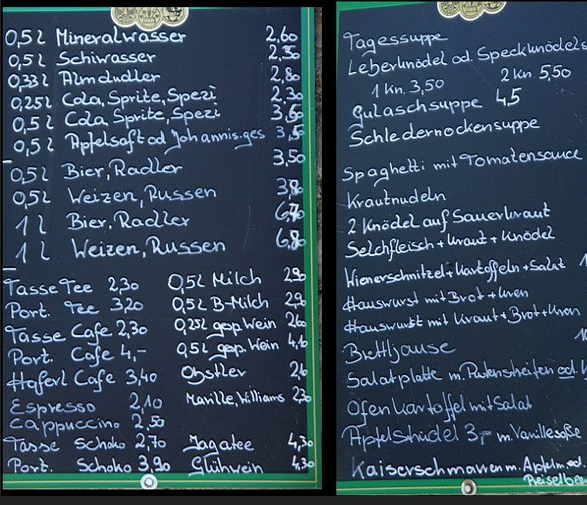 0,5 l Mineralwasser 2,60
0,5 l Schiwasser 2,50
0,33 l Almdudler 2,80
0,25 l Cola, Sprite, Spezi 2,30
0,5 l Cola, Sprite, Spezi
0,5 l Apfelsaft od Johannis.ges
3,50
0,5 l Bier, Radler
0,5 l Weizen, Russen
1 l Bier, Radler
1 l Weizen, Russen
Tasse Tee 2,30
Port. Tee 3,20
Tasse Cafe 2,30
Port. Cafe 4,-
Haferl Cafe 3,40
Espresso 2,10
Cappuccino 2,50
Tasse Schoko 2,70
Port. Schoko 3,90
0,5 l Milch
0,5 l B-Milch
0,25 l gesp. Wein
0,5 l gesp. Wein
Obstler
Marille, Williams
Jagatee 4,30
Glühwein 4,30
Tagessuppe
Leberknödel od. Speckknödels
1 Kn. 3,50 2 Kn. 5,50
Gulaschsuppe 4,5
Schledernockensuppe
Spaghetti mit Tomatensauce
Krautnudeln
2 Knödel auf Sauerkraut
Selchfleisch + Kraut + Knödel
Wienerschnitzel + Kartoffeln + Salat
Hauswurst mit Brot + Kren
Hauswurst mit Kraut + Brot + Kren
Brettljause
Salatplatte m. Putenstreifen od.
Ofenkartoffel mit Salat
Apfelstrudel 3,- m. Vanillesoße
Kaiserschmarren m. Apfelm. od.
Preiselbe